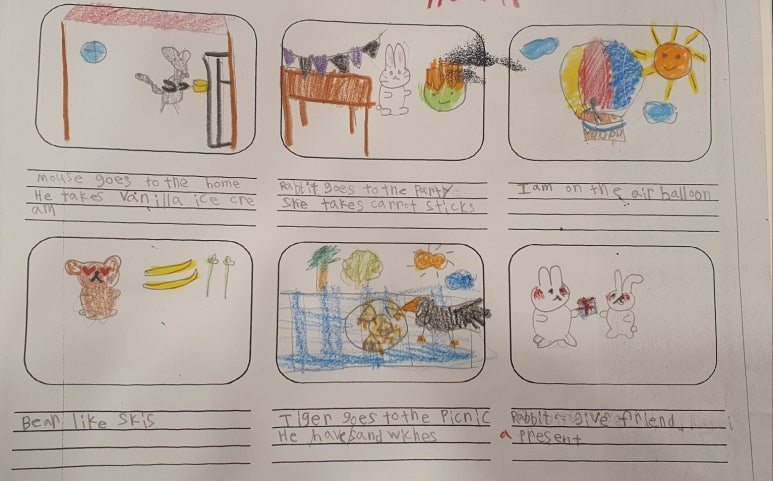 mouse goes to the home
He takes vanilla ice cre
am
Rabbit goes to the party.
She takes carrot sticks
I am on the air balloon
Bear like skis
Tiger goes to the picnic
He have sandwiches
Rabbit give friend
a present